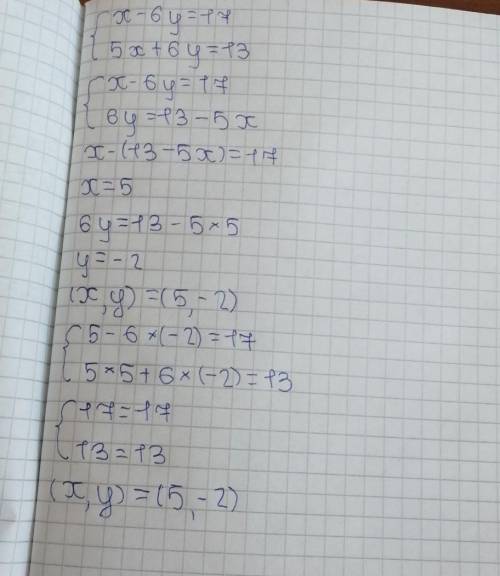 { x-6y=17
5x+6y=13
{ x-6y=17
6y=13-5x
x-(13-5x)=17
x=5
6y=13-5×5
y=-2
(x,y)=(5,-2)
{ 5-6×(-2)=17
5×5+6×(-2)=13
{ 17=17
13=13
(x,y)=(5,-2)